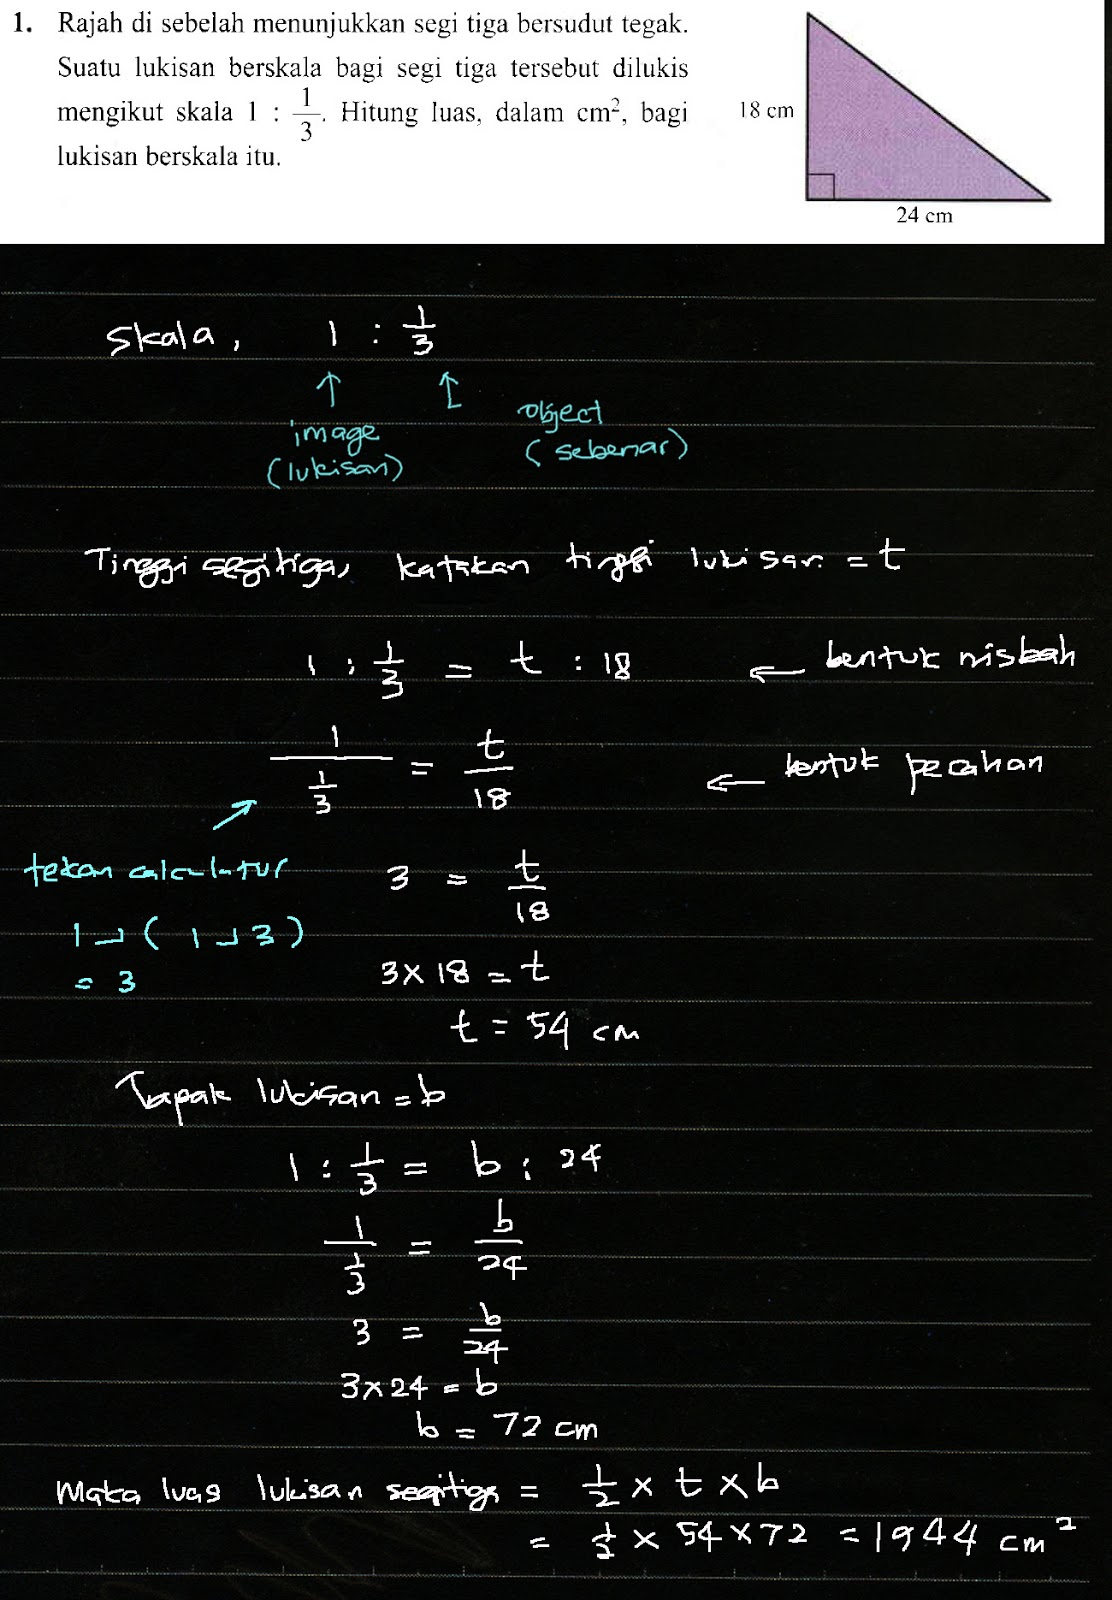 1. Rajah di sebelah menunjukkan segi tiga bersudut tegak.
Suatu lukisan berskala bagi segi tiga tersebut dilukis
mengikut skala 1 : 1/3. Hitung luas, dalam cm², bagi
lukisan berskala itu.
18 cm
24 cm
Skala, 1 : 1/3
↑ ↑
image (lukisan)
object (sebenar)
Tinggi segitiga, katakan tinggi lukisan = t
1 : 1/3 = t : 18 ← bentuk nisbah
1/(1/3) = t/18 ← bentuk pecahan
tekan calculatur
1 ┘ ( 1 ┘ 3 )
= 3
3 = t/18
3 × 18 = t
t = 54 cm
Tapak lukisan = b
1 : 1/3 = b : 24
1/(1/3) = b/24
3 = b/24
3 × 24 = b
b = 72 cm
Maka luas lukisan segitiga = 1/2 × t × b
= 1/2 × 54 × 72 = 1944 cm²